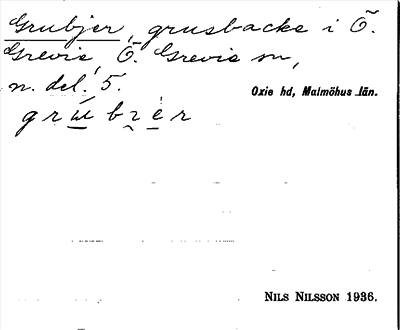 Grubjer, grusbacke i Ö.
Grevie, Ö. Grevie sn,
n. del. 5.
Oxie hd, Malmöhus län.
grúbrer
NILS NILSSON 1936.